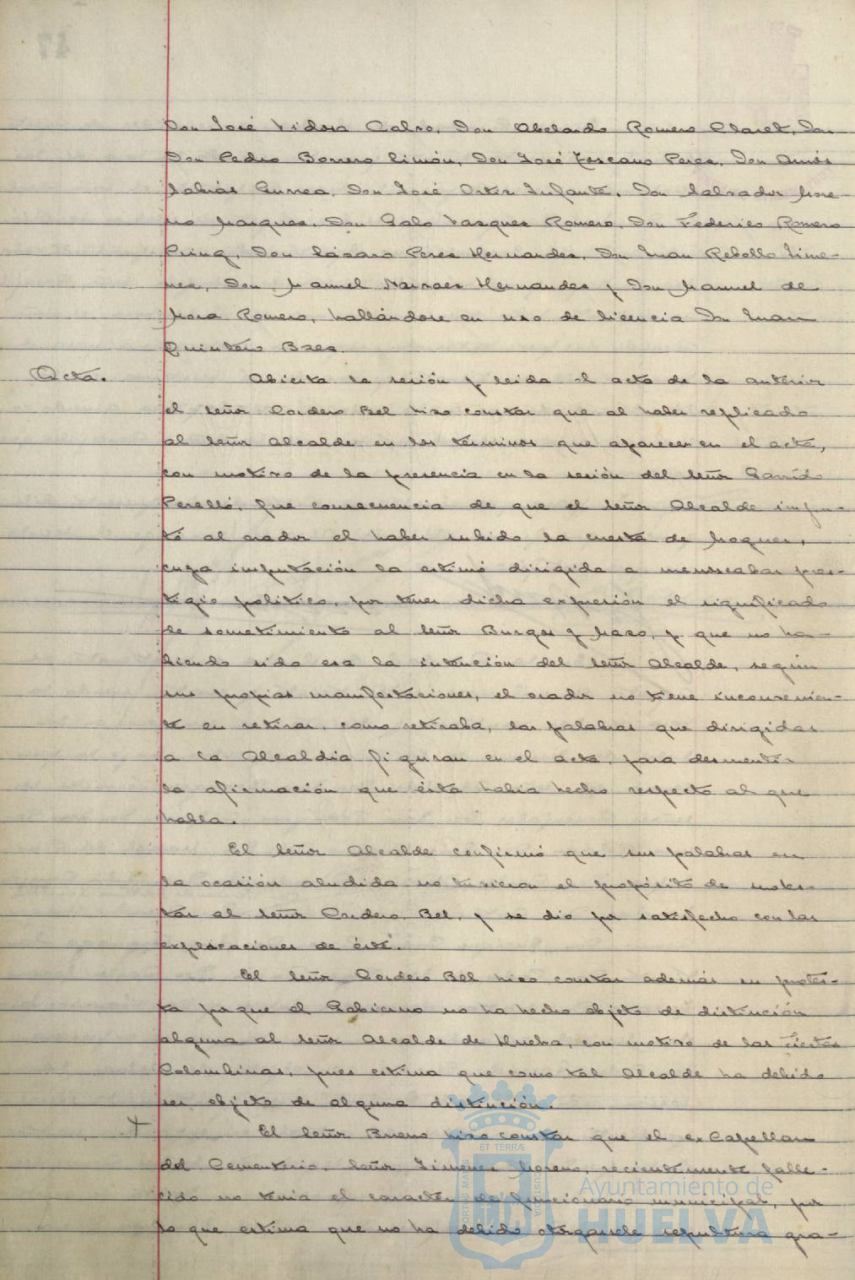 Don José Vidosa Calvo, Don Abelardo Romero Claret, Don
Don Pedro Borrero Limón, Don José Toscano Perez, Don Amós
Sabrás Gurrea, Don José Ortiz Infante, Don Salvador More-
no Marquez, Don Galo Vazquez Romero, Don Federico Romero
Don Lázaro Perez Hernandez, Don Juan Rebollo Jime-
nez, Don Manuel Narvaez Hernandez y Don Manuel de
Mora Romero, hallándose en uso de licencia Don Juan
Quintero Baez.
Acta.
Abierta la sesión y leida el acta de la anterior
el señor Cordero Bel hizo constar que al haber replicado
al señor Alcalde en los términos que aparecen en el acta,
con motivo de la presencia en la sesión del señor Garrido
Perelló, fue consecuencia de que el señor Alcalde impu-
tó al orador el haber subido la cuesta de Moguer,
cuya imputación la estimó dirigida a menoscabar pres-
tigio politico, por tener dicha expresión el significado
de sometimiento al señor Burgos y Mazo, y que no ha-
biendo sido esa la intención del señor Alcalde, según
sus propias manifestaciones, el orador no tiene inconvenien-
te en retirar, como retiraba, las palabras que dirigidas
a la Alcaldia figuran en el acta, para desmentir
la afirmación que ésta habia hecho respecto al que
habla.
El señor Alcalde confirmó que sus palabras en
la ocasión aludida no tuvieron el propósito de moles-
tar al señor Cordero Bel, y se dio por satisfecho con las
explicaciones de éste.
El señor Cordero Bel hizo constar además su protes-
ta porque el Gobierno no ha hecho objeto de distinción
alguna al señor Alcalde de Huelva, con motivo de las Fiestas
Colombinas, pues estima que como tal Alcalde ha debido
ser objeto de alguna distinción.
El señor Bueno hizo constar que el exCapellan
del Cementerio, señor Jimenez Moreno, recientemente falle-
cido no tenia el carácter de funcionario municipal, por
lo que estima que no ha debido otorgarsele sepultura gra-
Ayuntamiento de
HUELVA